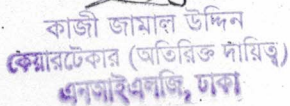 কাজী জামাল উদ্দিন
কেয়ারটেকার (অতিরিক্ত দায়িত্ব)
এনআইএলজি, ঢাকা